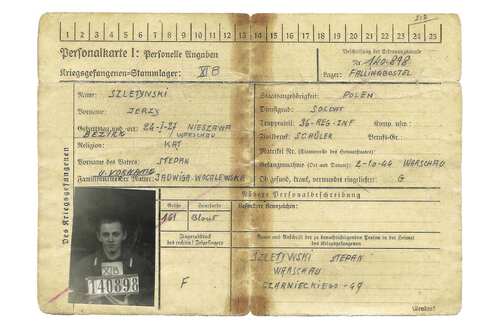 212
1 2 3 4 5 6 7 8 9 10 11 12 13 14 15 16 17 18 19 20 21 22 23 24 25
Personalkarte I: Personelle Angaben
Kriegsgefangenen-Stammlager: XI B
Beschriftung der Erkennungsmarke
Nr. 140.898
Lager: FALLINGBOSTEL
Des Kriegsgefangenen
Name: SZLETYŃSKI
Vorname: JERZY
Geburtstag und -ort: 24-I-27 NIESZAWA
BEZYRK WARSCHAU
Religion: KAT
Vorname des Vaters: STEPAN
u. VORNAME
Familienname der Mutter: JADWIGA-WOCALEWSKA
Staatsangehörigkeit: POLEN
Dienstgrad: SOLDAT
Truppenteil: 36-REG-INF Komp. usw.:
Zivilberuf: SCHÜLER Berufs-Gr.:
Matrikel Nr. (Stammrolle des Heimatstaates):
Gefangennahme (Ort und Datum): 2-10-44 WARSCHAU
Ob gesund, krank, verwundet eingeliefert: G
Nähere Personalbeschreibung
Größe Haarfarbe Besondere Kennzeichen:
161 Blond
Fingerabdruck
des rechten! Zeigefingers
F
Name und Anschrift der zu benachrichtigenden Person in der Heimat
des Kriegsgefangenen
SZLETYŃSKI STEPAN
WARSCHAU
CZARNIECKIEGO-49
XIB
140898